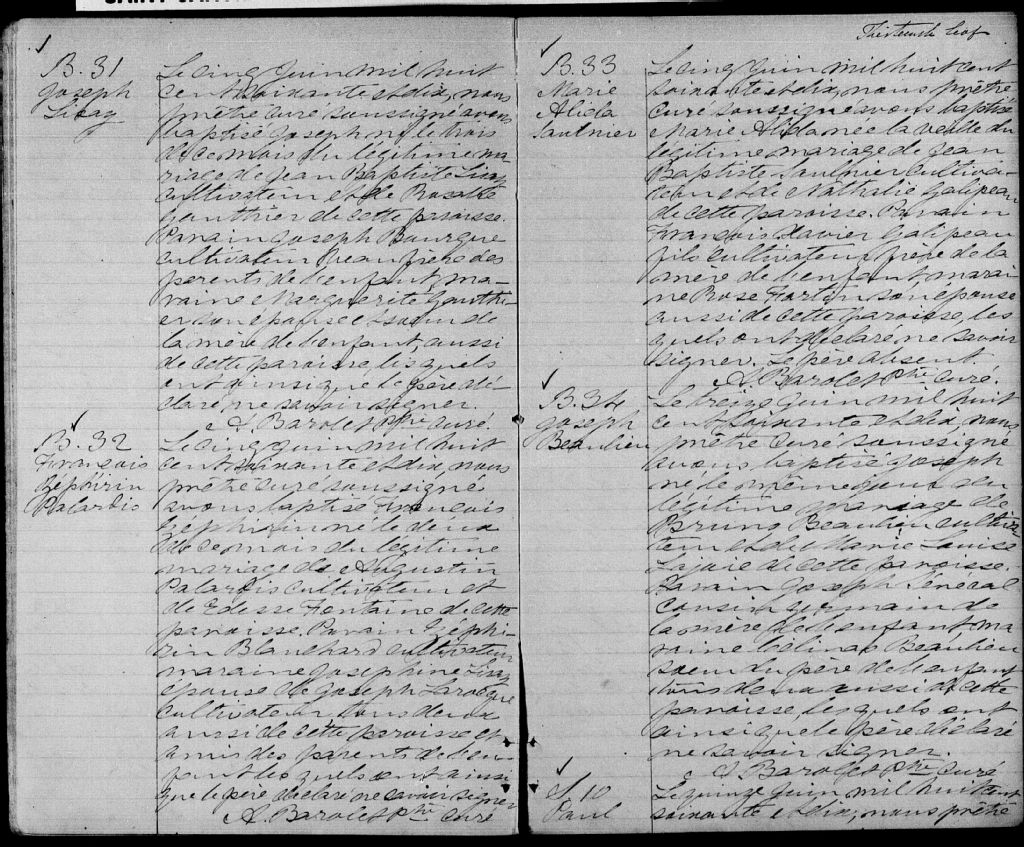 B. 31
Joseph
Lisay
Le cinq Juin mil huit
cent soixante et dix, nous
prêtre curé soussigné avons
baptisé Joseph né le trois
de ce mois du légitime ma-
riage de Jean Baptiste Lisay
cultivateur et de Rosalie
Gauthier de cette paroisse.
Parain Joseph Bourque
cultivateur beau frère des
parents de l'enfant, ma-
raine Marguerite Gauthi-
er son épouse et soeur de
la mère de l'enfant, aussi
de cette paroisse, lesquels
ont ainsi que le père dé-
claré ne savoir signer.
A. Barolet Ptre curé.
B. 32
François
Zephirin
Palardis
Le cinq Juin mil huit
cent soixante et dix, nous
prêtre curé soussigné
avons baptisé François
Zéphirin né le deux
de ce mois du légitime
mariage de Augustin
Palardis cultivateur et
de Edesse Fontaine de cette
paroisse. Parain Zéphi-
rin Blanchard cultivateur
maraine Josephine Lisay
épouse de Joseph Larocque
cultivateur, tous deux
aussi de cette paroisse et
amis des parents de l'en-
fant lesquels ont ainsi
que le père déclaré ne savoir signer
A. Barolet Ptre curé
Thirteenth leaf
B. 33
Marie
Alida
Saulnier
Le cinq Juin mil huit cent
soixante et dix, nous prêtre
curé soussigné avons baptisé
Marie Alida née la veille du
légitime mariage de Jean
Baptiste Saulnier cultiva-
teur et de Nathalie Galipeau
de cette paroisse. Parain
François Xavier Galipeau
fils cultivateur frère de la
mère de l'enfant, marai-
ne Rose Fortin son épouse
aussi de cette paroisse, les
quels ont déclaré ne savoir
signer. Le père absent
A. Barolet Ptre curé.
B. 34
Joseph
Beaulieu
Le treize Juin mil huit
cent soixante et dix, nous
prêtre curé soussigné
avons baptisé Joseph
né le même jour du
légitime mariage de
Bruno Beaulieu cultiva-
teur et de Marie Louise
Lajoie de cette paroisse.
Parain Joseph Senécal
cousin germain de
la mère de l'enfant, ma-
raine Célina Beaulieu
soeur du père de l'enfant
tous deux aussi de cette
paroisse, lesquels ont
ainsi que le père déclaré
ne savoir signer.
A. Barolet Ptre curé
S. 10
Paul
Le quinze Juin mil huit cent
soixante et dix, nous prêtre